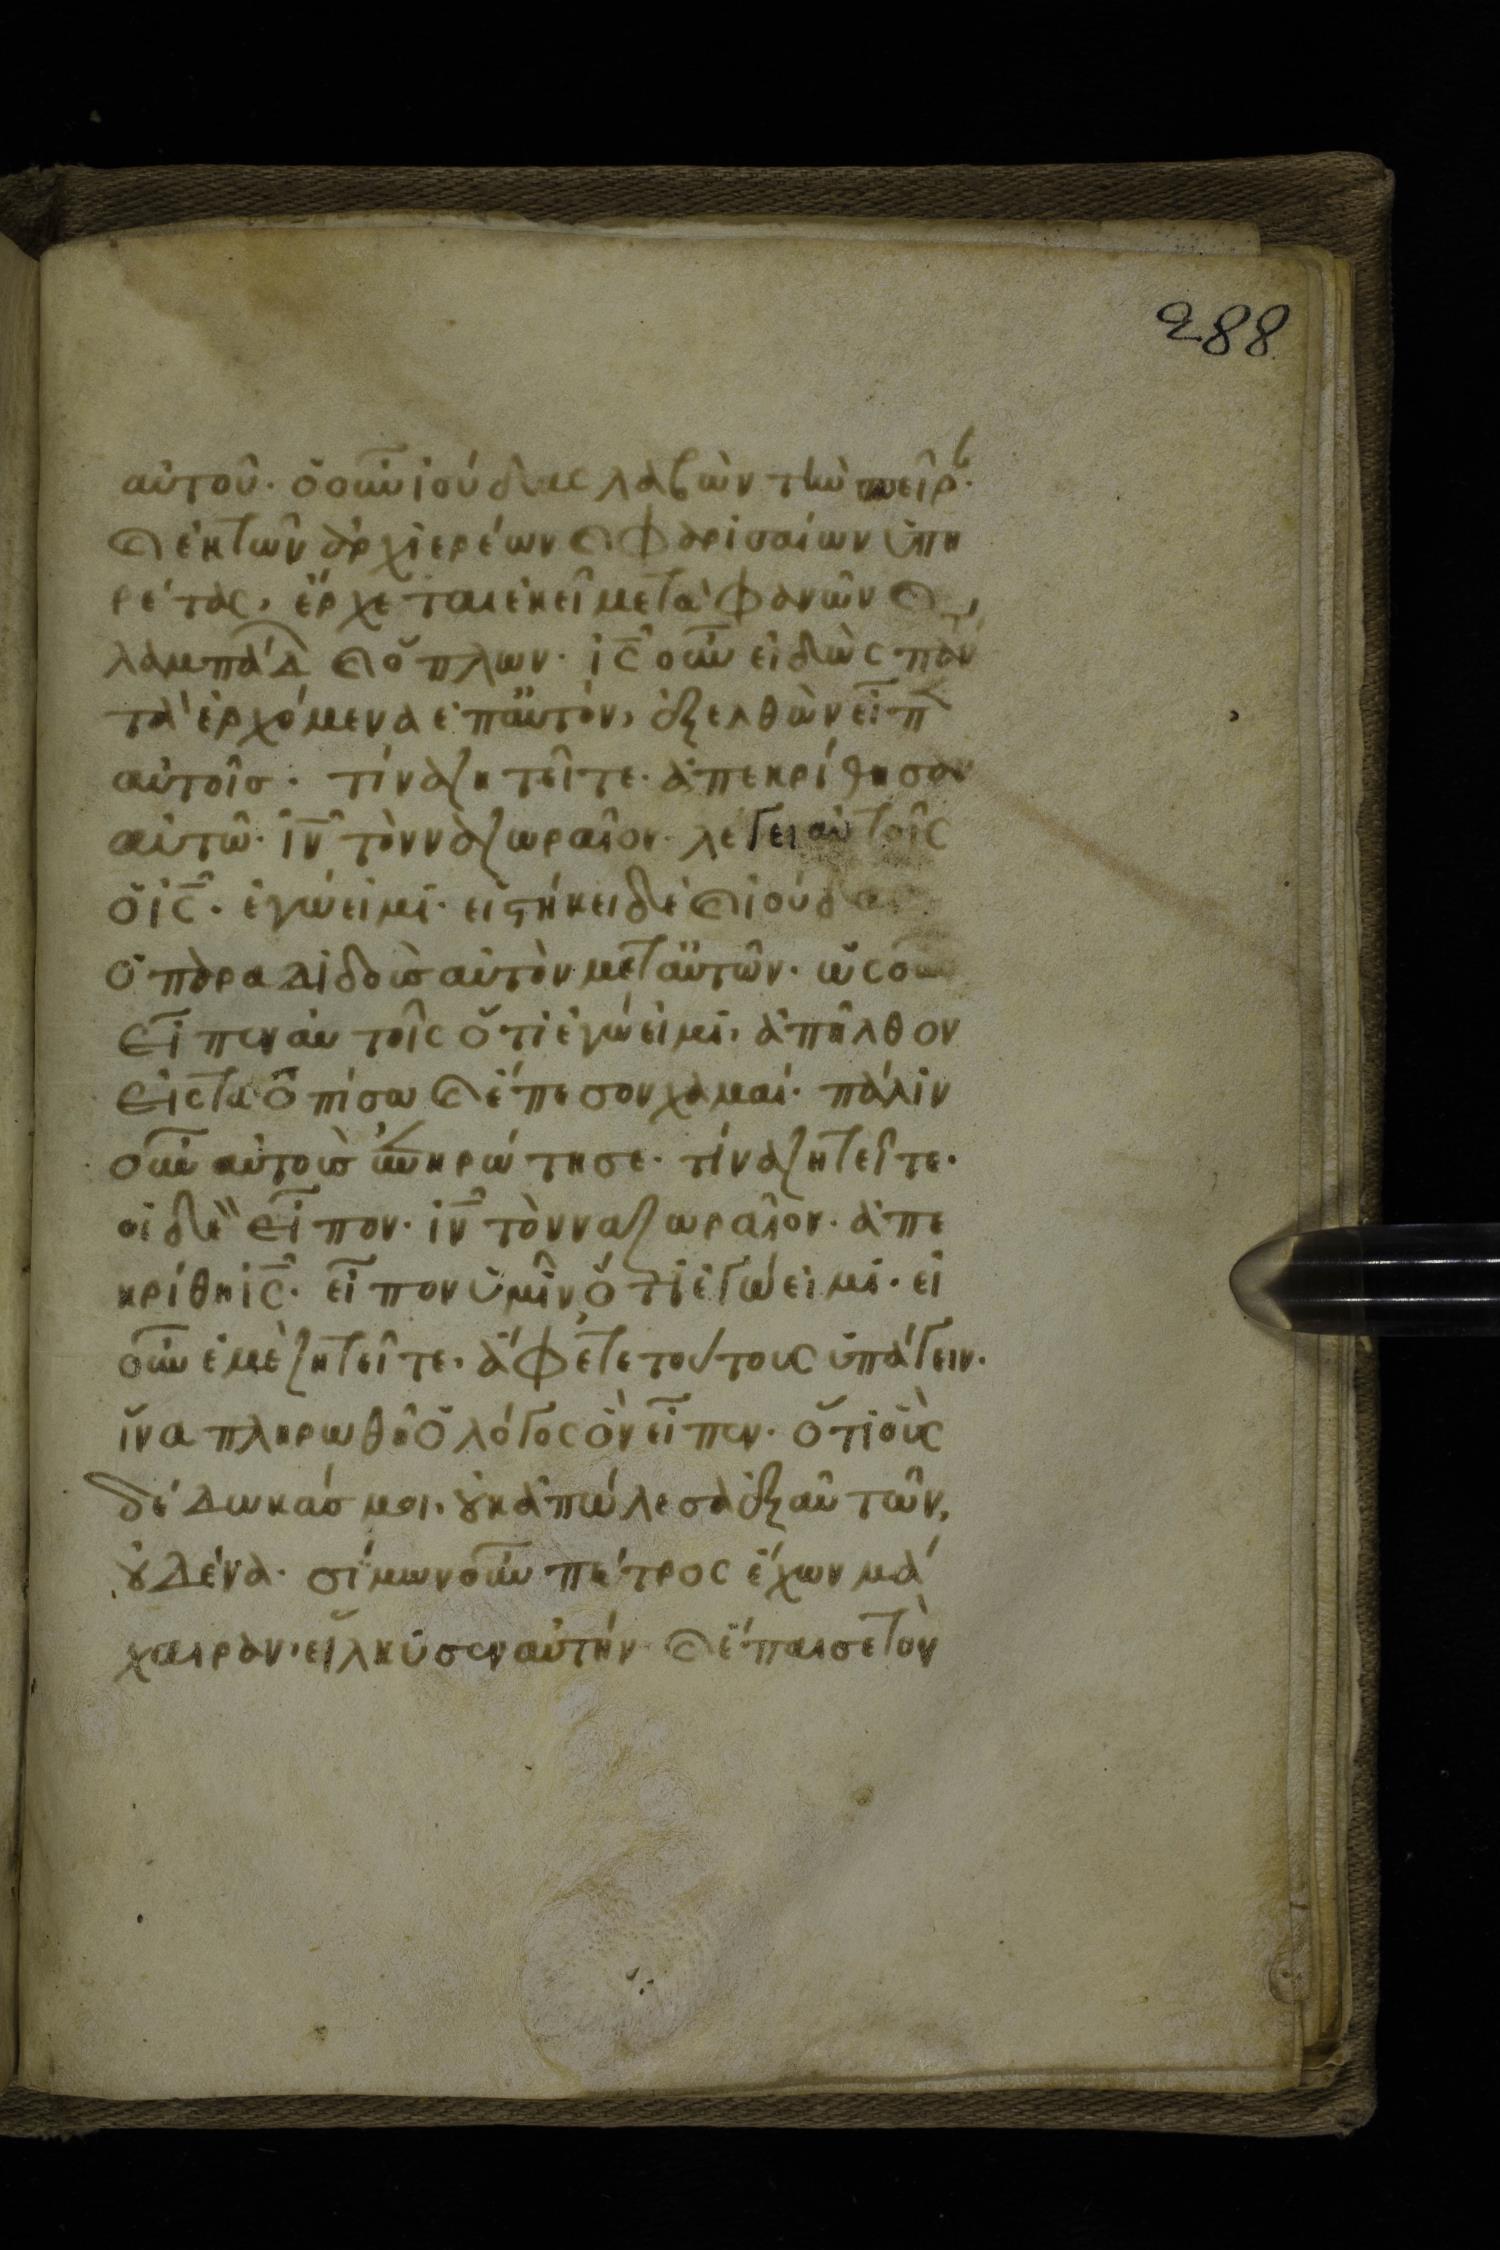 288
αὐτοῦ· ὁ οὖν ἰούδας λαβὼν τὴν σπεῖρ·
ϗ ἐκ τῶν ἀρχιερέων ϗ φαρισαίων ὑπη
ρέτας, ἔρχεται ἐκεῖ μετὰ φανῶν ϗ
λαμπάδ ϗ ὅπλων· ἰς̅ οὖν εἰδὼς πάν
τὰ ἐρχόμενα ἐπαὐτὸν, ἐξελθὼν εἶπ
αὐτοῖσ· τίνα ζητεῖτε· ἀπεκρίθησαν
αὐτῶ· ἰν̅ τὸν ναζωραῖον· λέγει αὐτοῖς
ὁ ἰς̅· ἐγώ εἰμι· εἱστήκει δὲ ϗ ἰούδας
ὁ παραδιδοὺσ αὐτὸν μεταὐτῶν· ὡς οὖν
εἶπεν αὐτοῖς ὅτι ἐγώ εἰμι, ἀπῆλθον
εἰς τὰ ὀπίσω ϗ ἔπεσον χαμαί· πάλιν
οὖν αὐτοὺσ ἐπηρώτησε· τίνα ζητεῖτε·
οἱ δὲ εἶπον· ἰν̅ τὸν ναζωραῖον· ἀπε
κρίθη ἰς̅· εἶπον ὑμῖν ὅτι ἐγώ εἰμι· εἰ
οὖν ἐμὲ ζητεῖτε, ἄφετε τούτους ὑπάγειν·
ἵνα πληρωθῆ ὁ λόγος ὃν εἶπεν· ὅτι οὓς
δέδωκάσ μοι, οὐκ ἀπώλεσα ἐξ αὐτῶν,
οὐδένα· σίμων οὖν πέτρος ἔχων μά
χαιραν, εἵλκυσεν αὐτὴν ϗ ἔπαισε τὸν